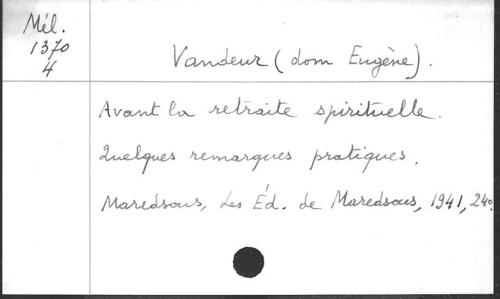 Mél.
1370
4
Vandeur (dom Eugène).
Avant la retraite spirituelle.
Quelques remarques pratiques.
Maredsous, Les Éd. de Maredsous, 1941, 24o.